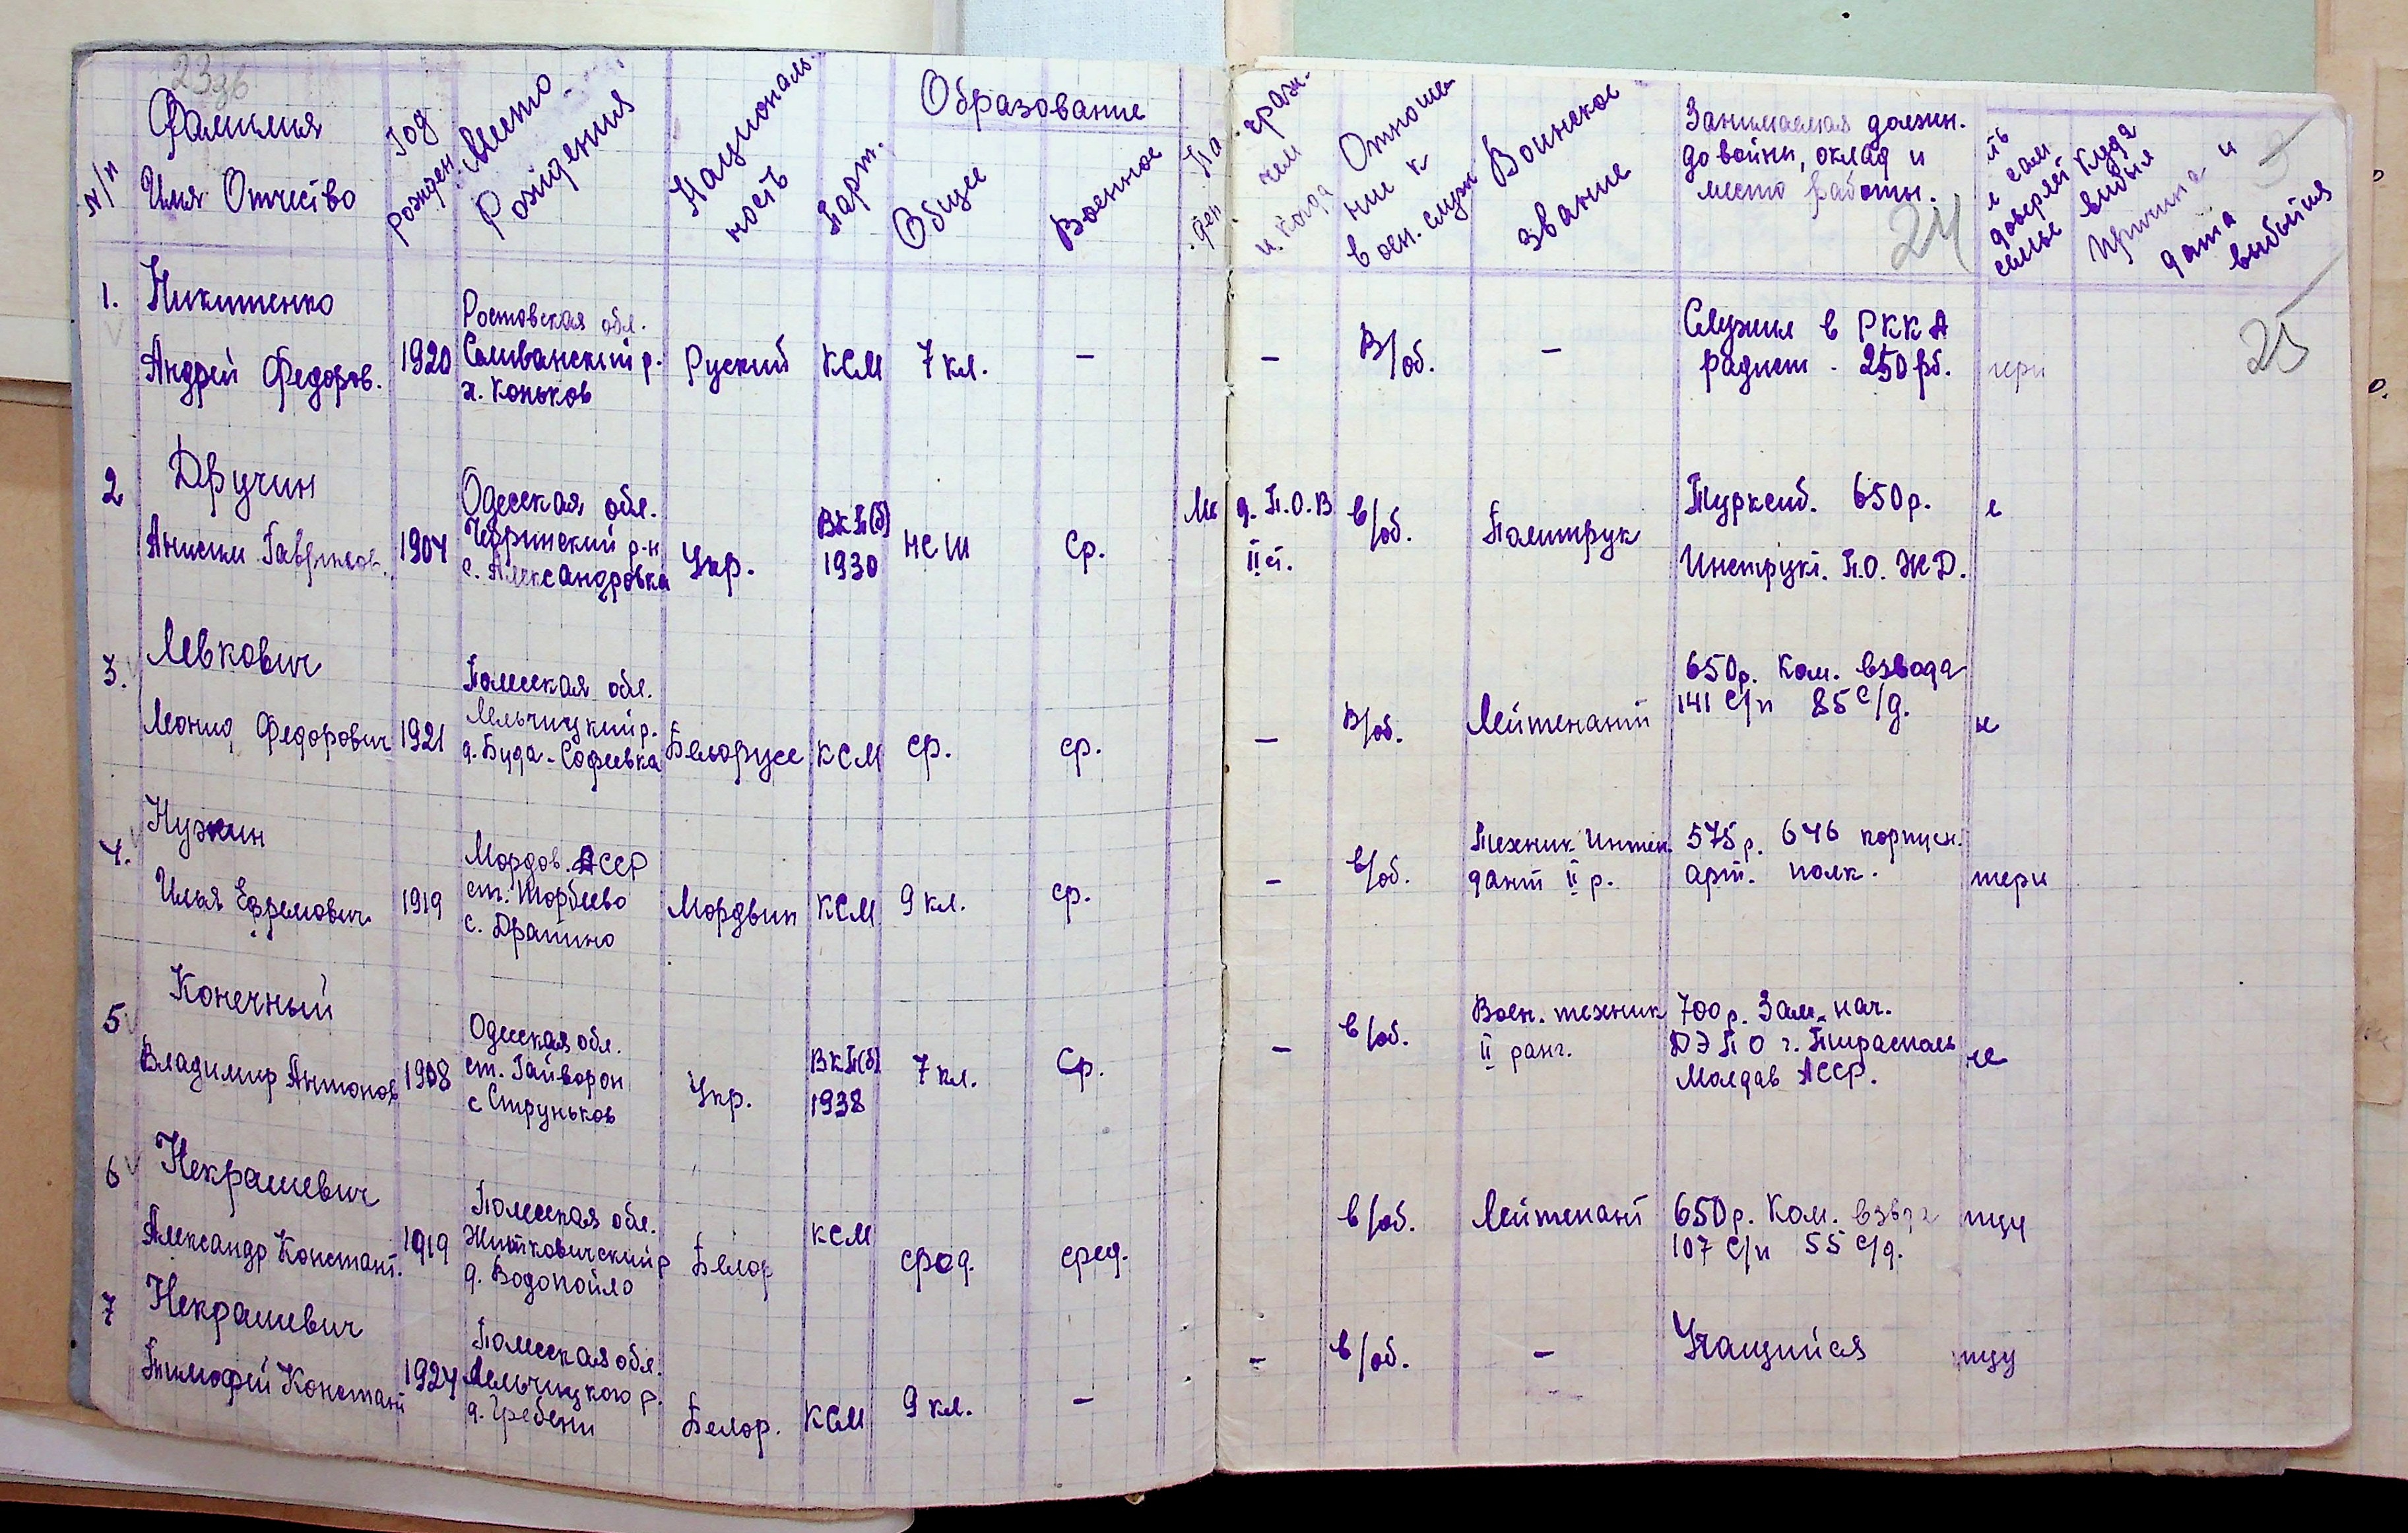 23об
N/п
Фамилия
Имя Отчество
Год
рожден.
Место
Рождения
Националь-
ность
Парт.
Образование
Общее
Военное
На
граж.
ден
чем
и когда
Отноше-
ние к
воен. служ
Воинское
звание
Занимаемая должн.
до войны, оклад и
место работы.
24
Куда
выбыл
Причина и
дата
выбытия
25
1.
Никитенко
Андрей Федоров.
1920
Ростовская обл.
Селиванский р.
х. Коньков
Руский
КСМ
7 кл.
–
–
В/об.
–
Служил в РККА
радист. 250 рб.
тери
2
Дручин
Анисим Гаврилов.
1904
Одесская обл.
с. Александровка
Укр.
ВКП(б)
1930
НСШ
Ср.
Ме
д. П.О.В
II ст.
в/об.
Политрук
Турксиб. 650 р.
Инструкт. П.О. ЖД.
е
3.
Левкович
Леонид Федорович
1921
Полесская обл.
Лельчицкий р.
д. Буда-Софиевка
Белорусс
КСМ
ср.
ср.
–
В/об.
Лейтенант
650 р. Ком. взвода
141 с/п 85 с/д.
е
4.
Нужин
Илья Ефремович
1919
Мордов. АССР
ст. Торбеево
с. Дракино
Мордвин
КСМ
9 кл.
ср.
–
в/об.
Техник. Интен.
дант II р.
575 р. 646 корпусн.
арт. полк.
тери
5
Конечный
Владимир Антонов
1908
Одесская обл.
ст. Гайворон
с Струньков
Укр.
ВКП(б)
1938
7 кл.
Ср.
–
в/об.
Воен. техник
II ранг.
700 р. Зам. нач.
ДЭПО г. Тирасполь
Молдав АССР.
не
6
Некрашевич
Александр Констант.
1919
Полесская обл.
Житковичский р
д. Водопойло
Белор
КСМ
сред.
сред.
в/об.
Лейтенант
650 р. Ком. взвода
107 с/п 55 с/д.
тцу
7
Некрашевич
Тимофей Констант
1924
Полесская обл.
Лельчицкого р.
д. Гребени
Белор.
КСМ
9 кл.
–
–
в/об.
–
Учащийся
тцу